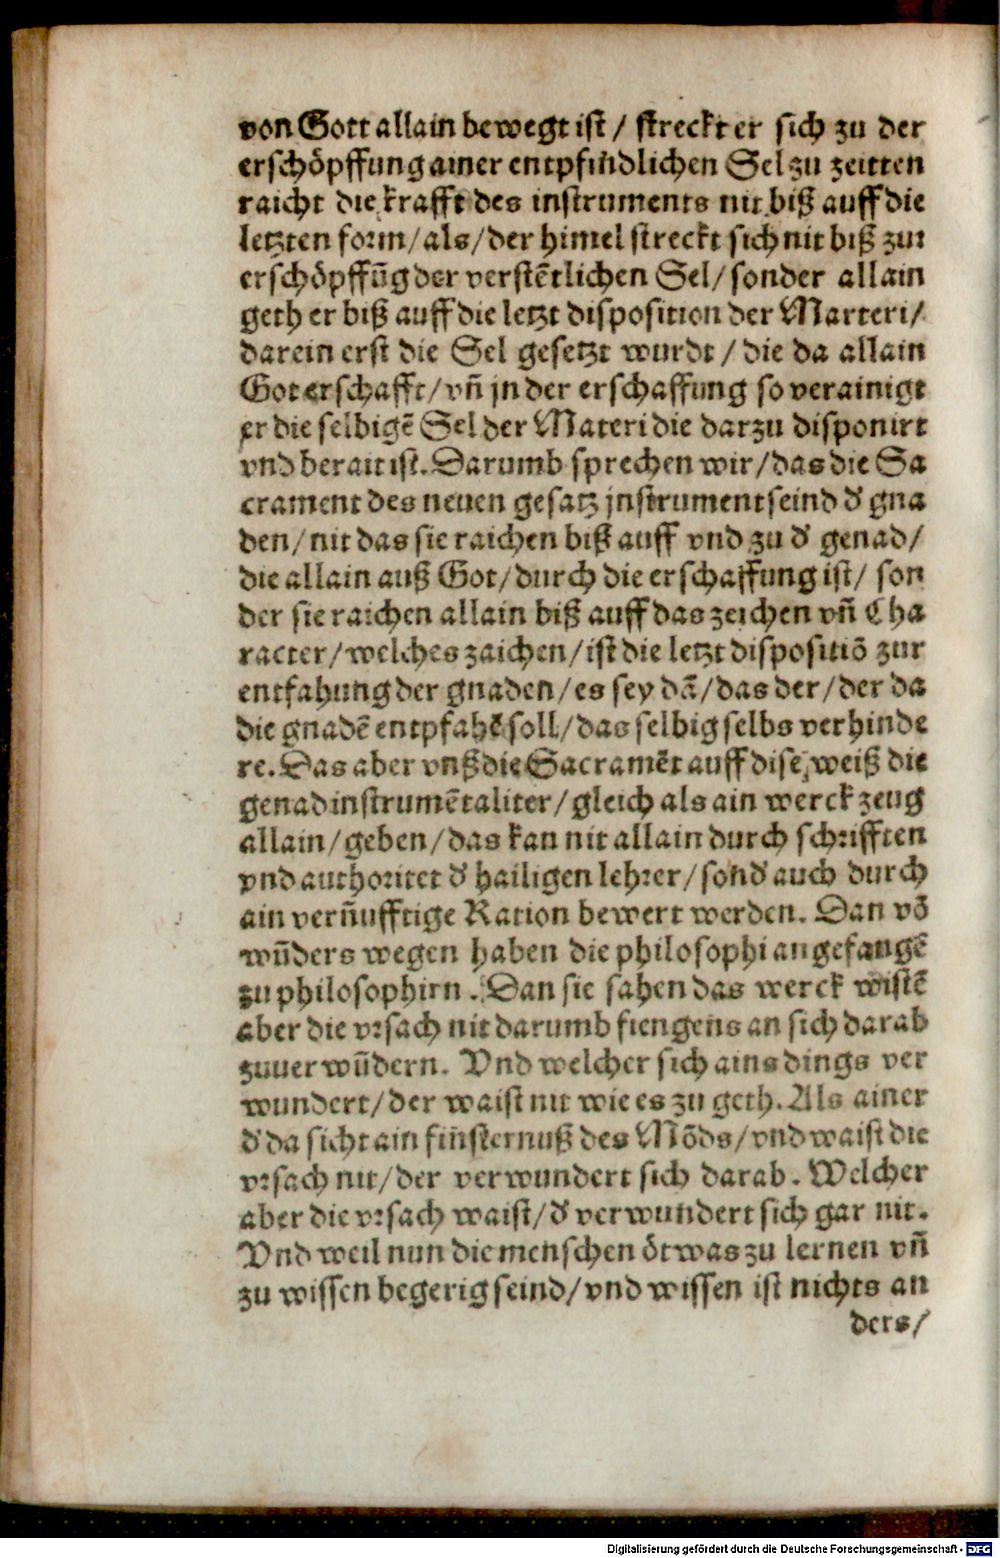 von Gott allain bewegt ist / streckt er sich zu der
erschöpffung ainer entpfindlichen Sel zu zeitten
raicht die krafft des instruments nit biß auff die
letzten form / als / der himel streckt sich nit biß zur
erschöpffūg der verstētlichen Sel / sonder allain
geth er biß auff die letzt disposition der Marteri /
darein erst die Sel gesetzt wurdt / die da allain
Got erschafft / vñ jn der erschaffung so verainigt
er die selbigē Sel der Materi die darzu disponirt
vnd berait ist. Darumb sprechen wir / das die Sa
crament des neuen gesatz jnstrument seind d' gna
den / nit das sie raichen biß auff vnd zu d' genad /
die allain auß Got / durch die erschaffung ist / son
der sie raichen allain biß auff das zeichen vñ Cha
racter / welches zaichen / ist die letzt dispositiō zur
entfahung der gnaden / es sey dā / das der / der da
die gnadē entpfahē soll / das selbig selbs verhinde
re. Das aber vnß die Sacramēt auff dise weiß die
genad instrumētaliter / gleich als ain werckzeug
allain / geben / das kan nit allain durch schrifften
vnd authoritet d' hailigen lehrer / sond' auch durch
ain verñufftige Ration bewert werden. Dan vō
wūders wegen haben die philosophi angefangē
zu philosophirn. Dan sie sahen das werck wistē
aber die vrsach nit darumb fiengens an sich darab
zuuerwūdern. Vnd welcher sich ains dings ver
wundert / der waist nit wie es zu geth. Als ainer
d' da sicht ain fiñsternuß des Mōds / vnd waist die
vrsach nit / der verwundert sich darab. Welcher
aber die vrsach waist / d' verwundert sich gar nit.
Vnd weil nun die menschen ötwas zu lernen vñ
zu wissen begerig seind / vnd wissen ist nichts an
ders /
Digitalisierung gefördert durch die Deutsche Forschungsgemeinschaft - DFG